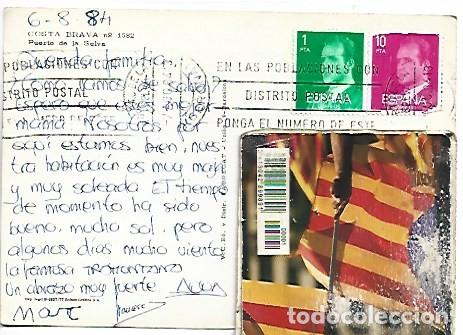 6-8-84
COSTA BRAVA nº 1582
Puerto de la Selva
Querida familia:
Como vamos de salud
Espero que estés mejor
mamá. Nosotros por
aquí estamos bien, nues-
tra habitación es muy maja
y muy soleada. El tiempo
de momento ha sido
bueno, mucho sol, pero
algunos días mucho viento
la famosa tramontana
Un abrazo muy fuerte
Marc
POBLACIONES CON
DISTRITO POSTAL
EN LAS POBLACIONES CON
DISTRITO POSTAL
PONGA EL NUMERO DE ESTE
1
PTA
ESPAÑA
10
PTA
ESPAÑA
CORREOS
00001
todocoleccion